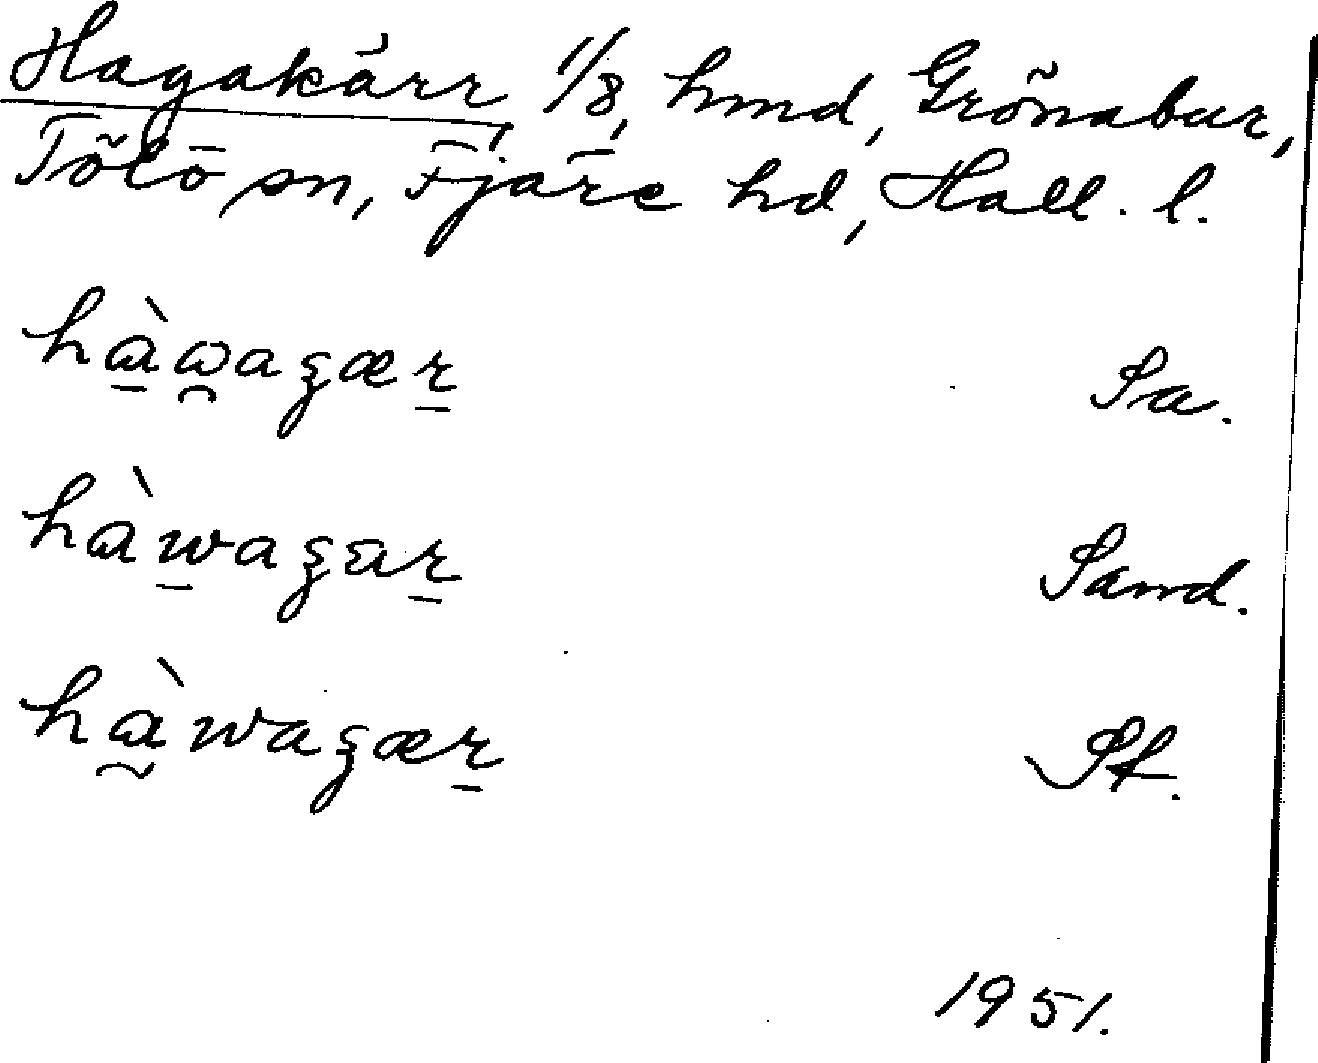 Hagakärr, 1/8, hmd, Grönabur,
Tölö sn, Fjäre hd, Hall. l.
hàwagær Sa.
hàwagar Sand.
hàwagær Sf.
1951.